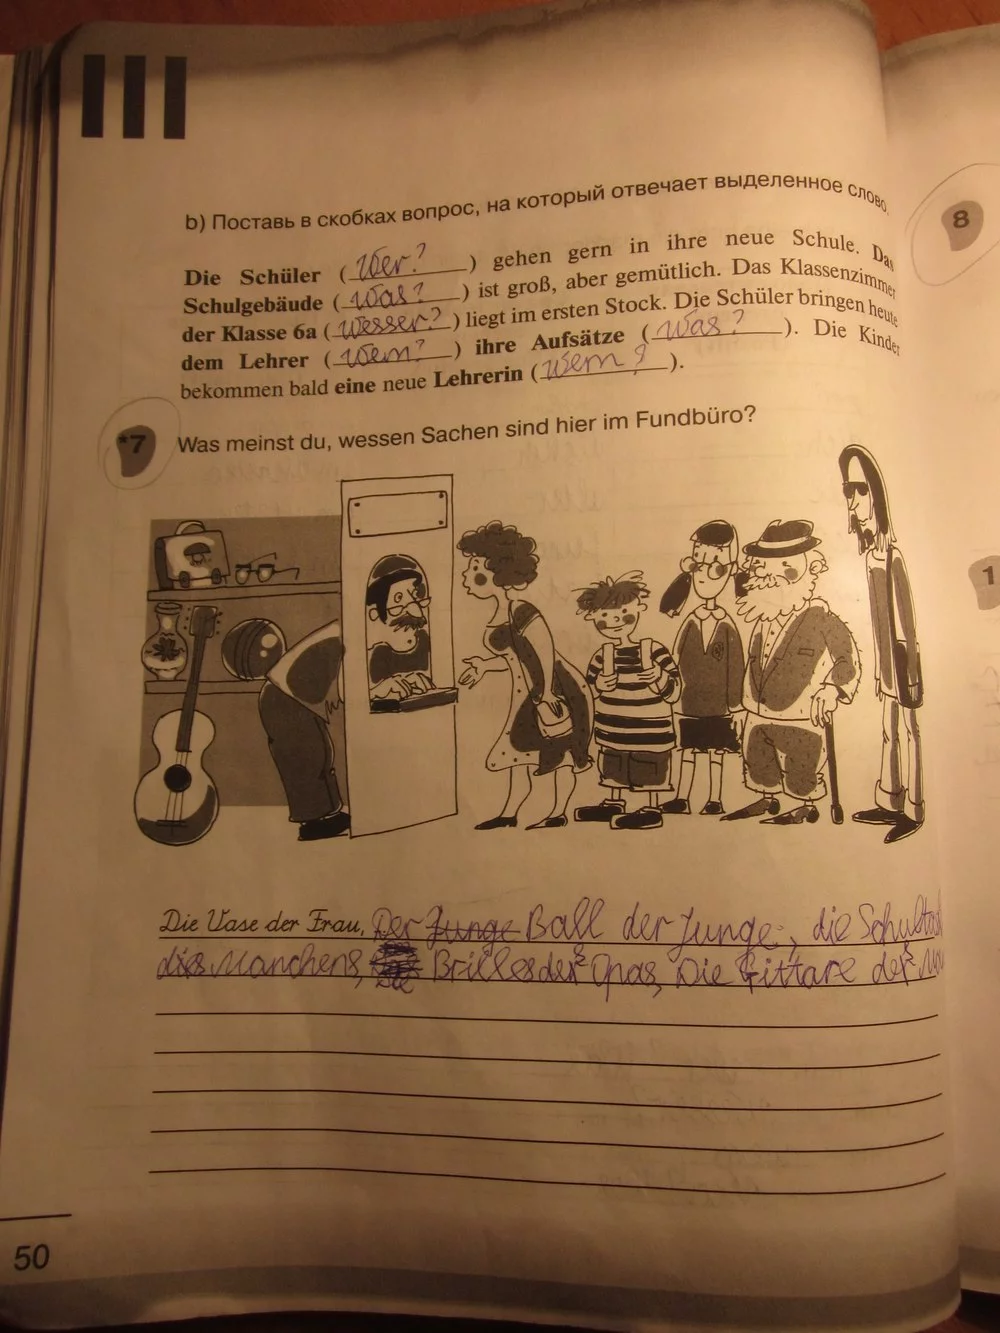 b) Поставь в скобках вопрос, на который отвечает выделенное слово.
Die Schüler ( Wer? ) gehen gern in ihre neue Schule. Das
Schulgebäude ( Was? ) ist groß, aber gemütlich. Das Klassenzimmer
der Klasse 6a ( Wesser? ) liegt im ersten Stock. Die Schüler bringen heute
dem Lehrer ( Wem? ) ihre Aufsätze ( Was? ). Die Kinder
bekommen bald eine neue Lehrerin ( Wem? ).
*7 Was meinst du, wessen Sachen sind hier im Fundbüro?
Die Vase der Frau, Der Junge Ball der Junge, die
Opas, Die Gittare
50
8
1